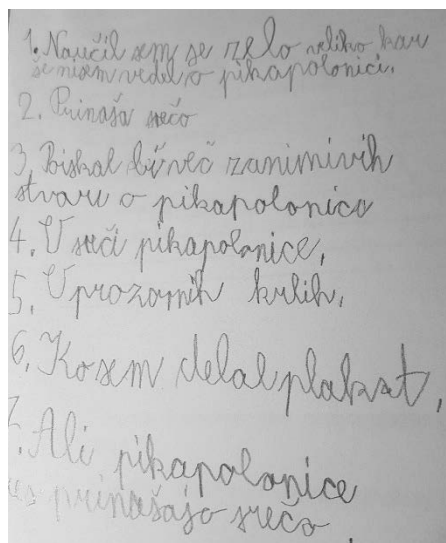 1. Naučil sem se zelo veliko kar
še nisem vedel o pikapolonici.
2. Prinaša srečo
3. Poiskal bi več zanimivih
stvari o pikapolonico
4. V sreči pikapolonice,
5. V prozornih krlih.
6. Ko sem delal plakat,
7. Ali pikapolonice
res prinašajo srečo.